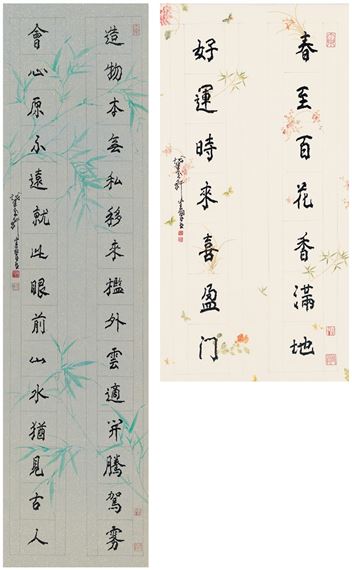 造物本無私移來檻外雲適并騰駕雾
會心原不遠就此眼前山水猶見古人
春至百花香滿地
好運時來喜盈门